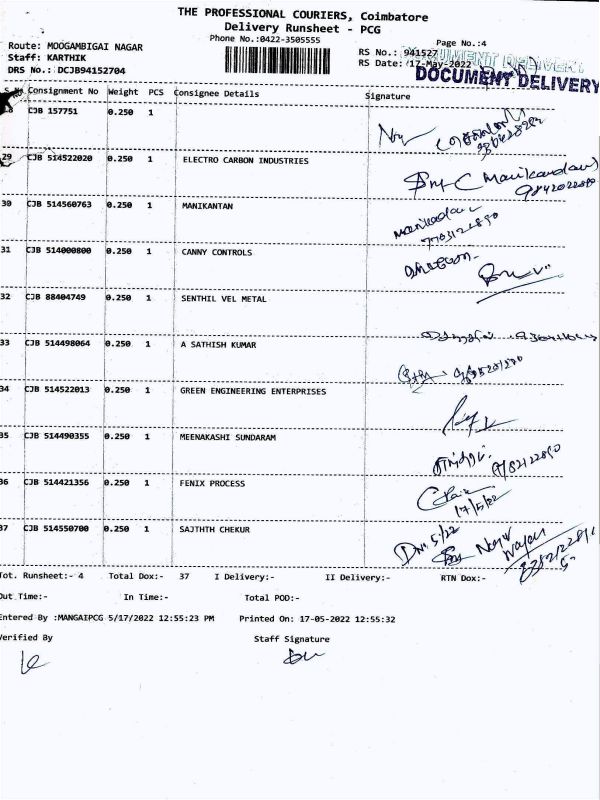 THE PROFESSIONAL COURIERS, Coimbatore
Delivery Runsheet - PCG
Phone No.:0422-3505555
Page No.:4
Route: MOOGAMBIGAI NAGAR
RS No.: 941527
Staff: KARTHIK
RS Date: 17-May-2022
DRS No.: DCJB94152704
DOCUMENT DELIVERY
DOCUMENT DELIVERY
Consignment No Weight PCS Consignee Details Signature
CJB 157751 0.250 1
29 CJB 514522020 0.250 1 ELECTRO CARBON INDUSTRIES
(Manikandan)
9842022840
30 CJB 514560763 0.250 1 MANIKANTAN
Manikandan
31 CJB 514000800 0.250 1 CANNY CONTROLS
32 CJB 88404749 0.250 1 SENTHIL VEL METAL
33 CJB 514498064 0.250 1 A SATHISH KUMAR
34 CJB 514522013 0.250 1 GREEN ENGINEERING ENTERPRISES
35 CJB 514490355 0.250 1 MEENAKASHI SUNDARAM
36 CJB 514421356 0.250 1 FENIX PROCESS
17/5/22
37 CJB 514550700 0.250 1 SAJTHTH CHEKUR
Tot. Runsheet:- 4 Total Dox:- 37 I Delivery:- II Delivery:- RTN Dox:-
Out Time:- In Time:- Total POD:-
Entered By :MANGAIPCG 5/17/2022 12:55:23 PM Printed On: 17-05-2022 12:55:32
Verified By Staff Signature